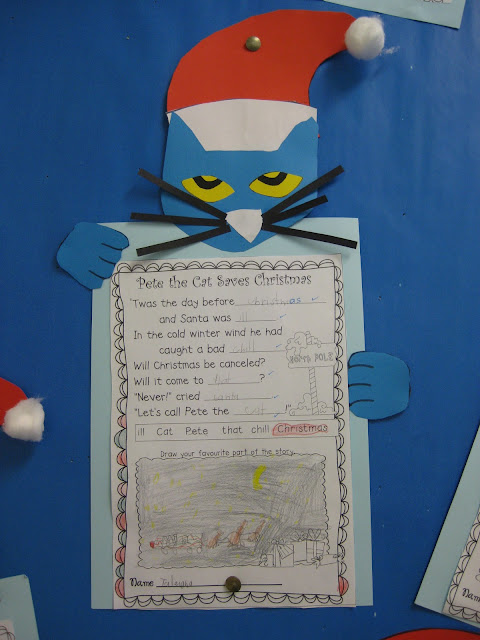 Pete the Cat Saves Christmas
'Twas the day before christmas
and Santa was ill
In the cold winter wind he had
caught a bad chill
NORTH POLE
Will Christmas be canceled?
Will it come to that?
"Never!" cried santa
"Let's call Pete the cat!"
ill Cat Pete that chill Christmas
Draw your favourite part of the story.
Name